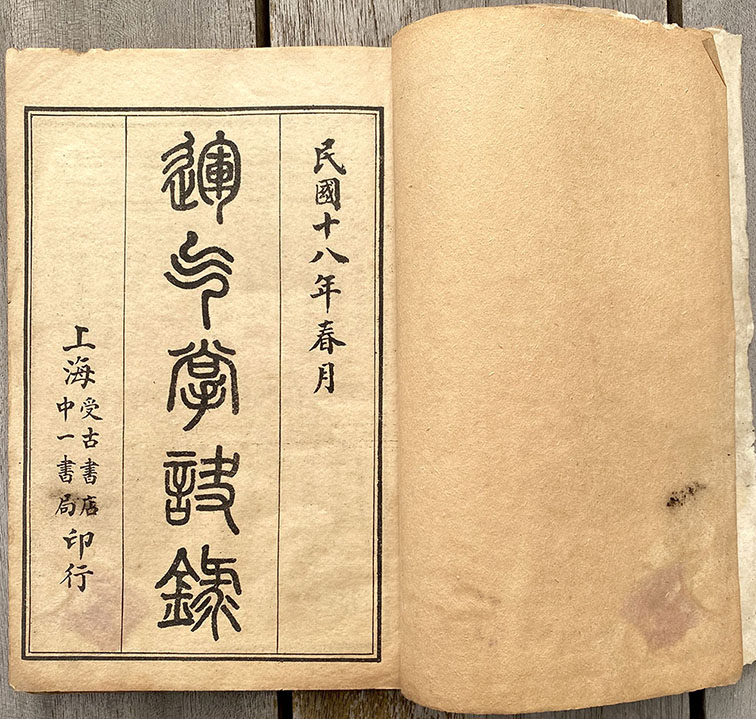 民國十八年春月
運气掌訣錄
上海受古書店中一書局印行